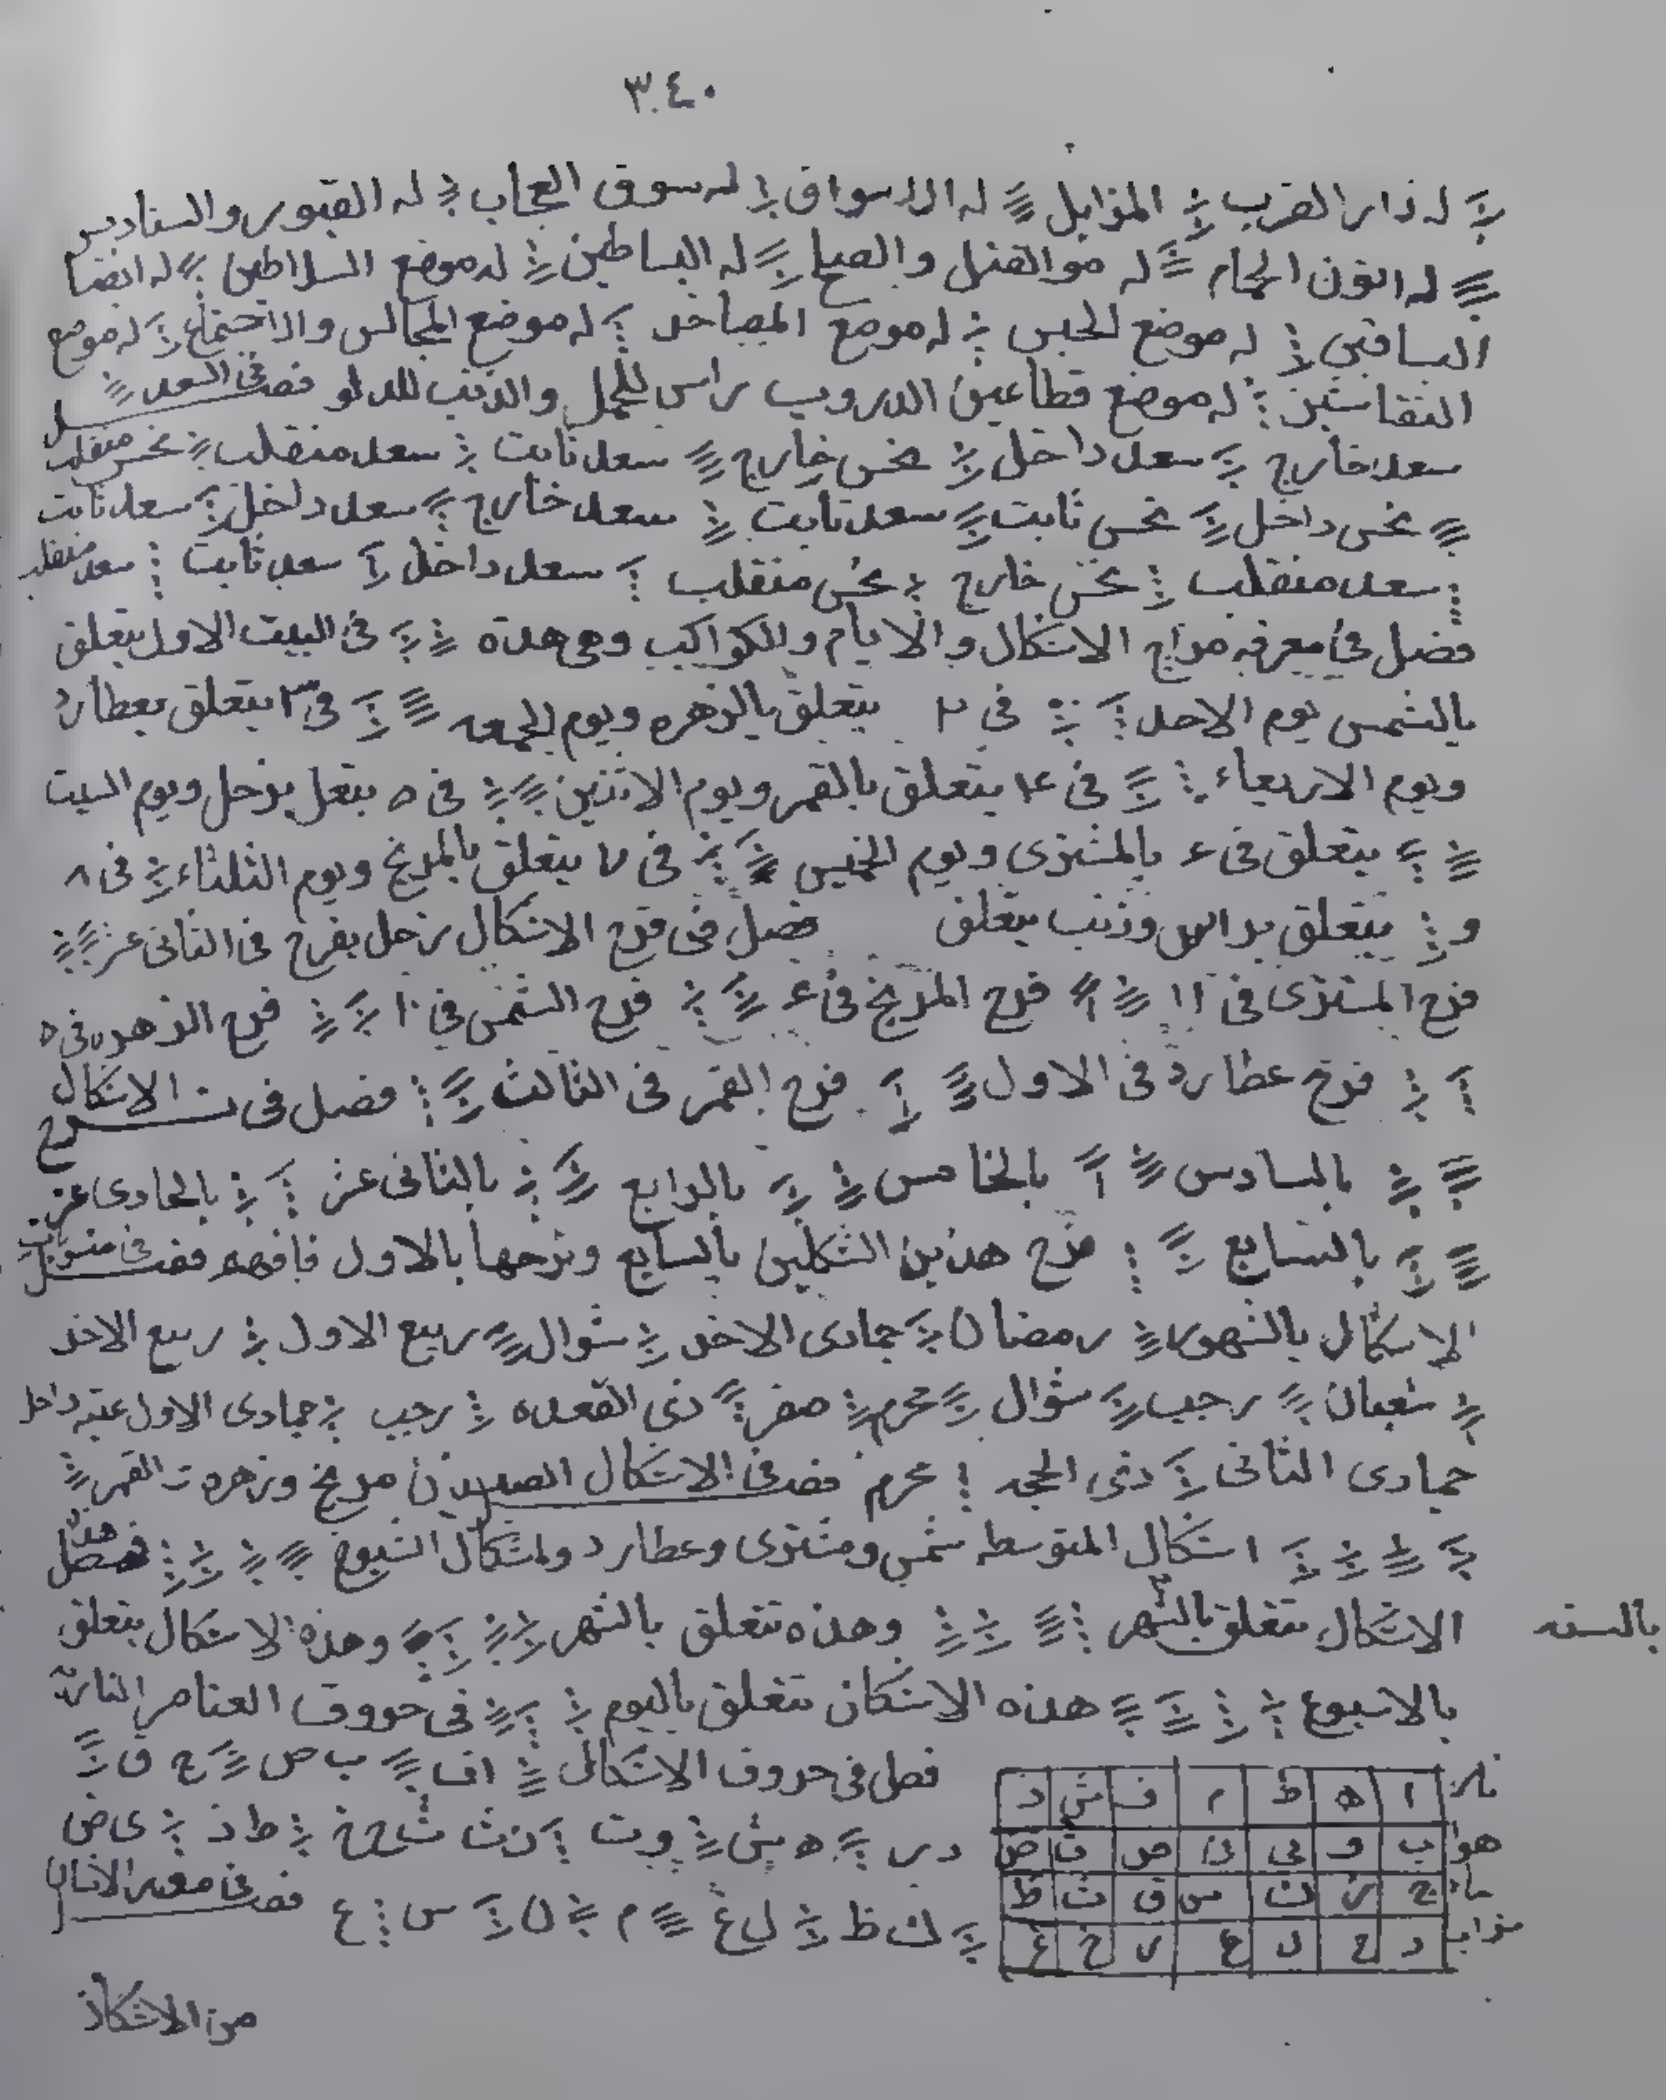 ٣٤٠
له دار الضرب المزابل له الاسواق له سوق العجاب له القبور والسناديس
له اتون الحمام له موالقتل والصياح له البساطين له موضع السلاطين له ايضا
البساقين له موضع الحبس له موضع المصاخر له موضع المجالس والاجتماع له موضع
النقاشين له موضع قطاعين الدروب راس للحمل والذنب للدلو فصل فى السعد
سعد خارج سعد داخل نحس خارج سعد ثابت سعد منقلب نحس منقلب
نحس داخل نحس ثابت سعد ثابت سعد خارج سعد داخل سعد ثابت
سعد منقلب نحس خارج نحس منقلب سعد داخل سعد ثابت سعد منقلب
فصل فى معرفه مزاج الاشكال والايام والكواكب وهى هذه فى البيت الاول يتعلق
بالشمس يوم الاحد فى ٢ يتعلق بالزهره ويوم الجمعه فى ٣ يتعلق بعطارد
ويوم الاربعاء فى ٤ يتعلق بالقمر ويوم الاثنين فى ٥ يتعل بزحل ويوم السبت
يتعلق فى ٦ بالمشترى ويوم الخميس فى ٧ يتعلق بالمريخ ويوم الثلثاء فى ٨
و يتعلق براس وذنب يتعلق فصل فى فرح الاشكال زحل يفرح فى الثانى عشر
فرح المشترى فى ١١ فرح المريخ فى ٦ فرح الشمس فى ١٠ فرح الزهره فى ٥
فرح عطارد فى الاول فرح القمر فى الثالث فصل فى ترح الاشكال
بالسادس بالخامس بالرابع بالثانى عشر بالحادى عشر
بالتسابع فرح هذين الشكلين بالسابع وترحها بالاول فافهم فصل فى منسوبات
الاشكال بالشهور رمضان جمادى الاخر شوال ربيع الاول ربيع الاخر
شعبان رجب شوال محرم صفر ذى القعده رجب جمادى الاول عتبه داخل
جمادى الثانى ذى الحجه محرم فصل فى الاشكال الصبيان مريخ وزهره القمر
اشكال المتوسطه شمس ومشترى وعطارد ولشكال الشيوخ فصل هذه
الاشكال تتعلق بالشهر وهذه تتعلق بالشهر وهذه الاشكال يتعلق
بالسنه
بالاسبوع هذه الاشكان تتعلق باليوم فى حووف العناصر الناريه
فصل فى حروف الاشكال اف ب ص ج ق
در ه ش وت زث ح خ ط ذ ى ض
ك ظ ل غ م ن س ع فصل فى معرفه الاناث
نار ا ه ط م ف ش ذ
هوا ب و ى ن ص ت ض
ماء ج ز ك س ق ث ظ
تراب د ح ل ع ر خ غ
من الاشكاذ